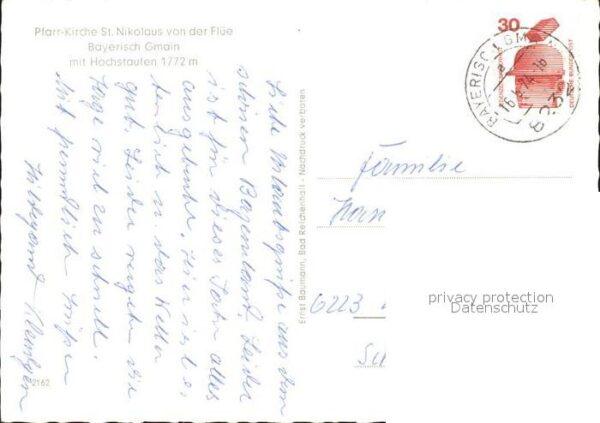 Pfarr-Kirche St. Nikolaus von der Flüe
Bayerisch Gmain
mit Hochstaufen 1772 m
Liebe Urlaubsgrüße aus dem
schönen Bayernland. Leider
ist für dieses Jahr alles
ausgebucht. Hier ist es
herrlich u. das Wetter
gut. Leider vergehen die
Tage viel zu schnell.
Mit freundlichen Grüßen
Hildegard
2162
Ernst Baumann, Bad Reichenhall - Nachdruck verboten
30
DEUTSCHE BUNDESPOST
BAYERISCH GMAIN
Familie
6223
privacy protection
Datenschutz